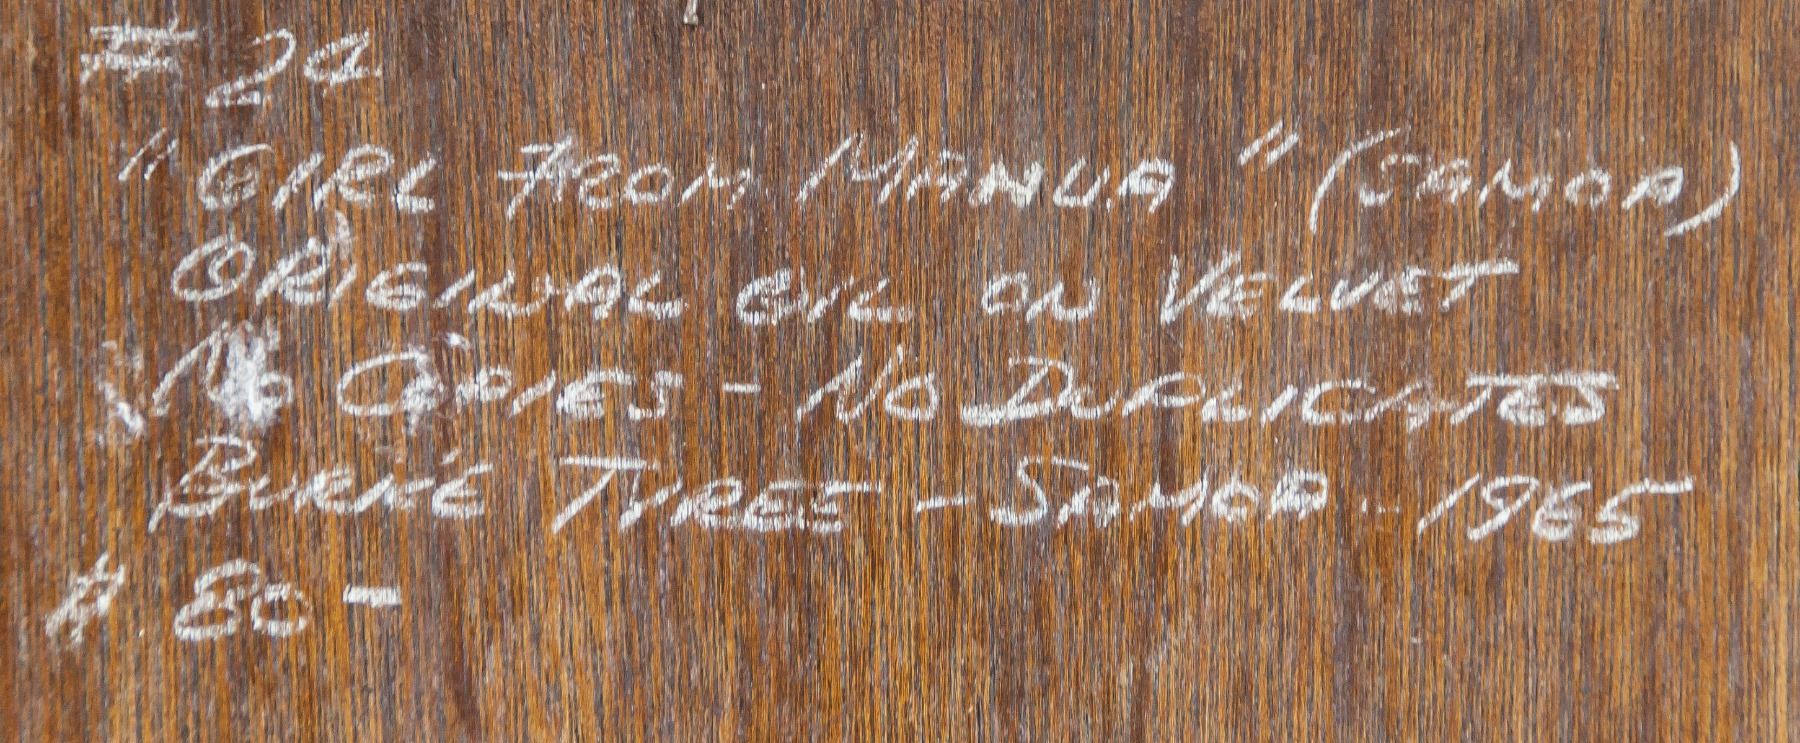 # 24
"GIRL FROM MANUA" (SAMOA)
ORIGINAL OIL ON VELVET
NO COPIES - NO DUPLICATES
BURKE TYREE - SAMOA - 1965
$ 80 -